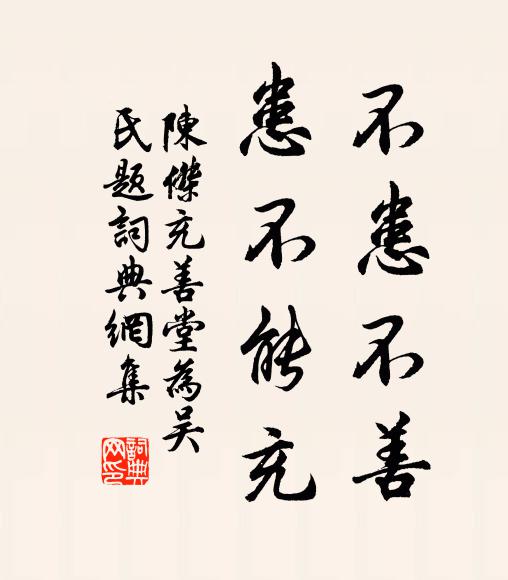 不患不善
患不能充
陳傑充善堂為吳
氏題詞典網集
詞典网印